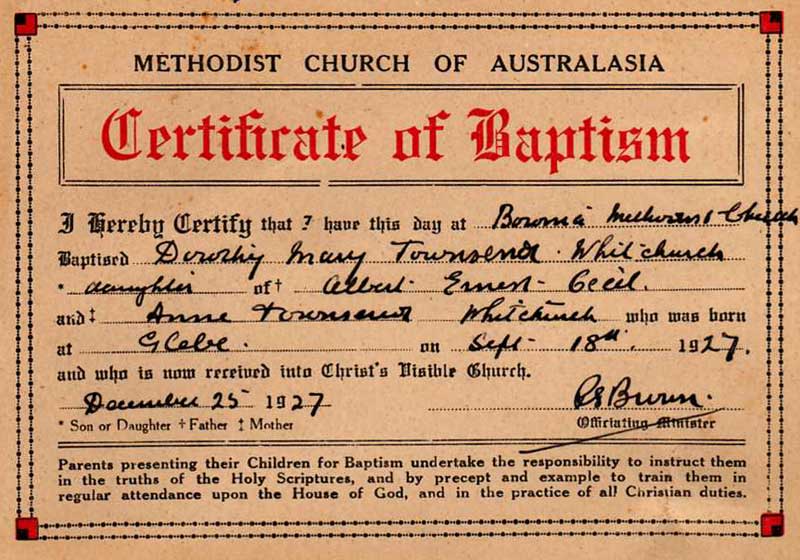 METHODIST CHURCH OF AUSTRALASIA
Certificate of Baptism
I Hereby Certify that I have this day at Methodist Church
Baptised Dorothy Mary Townsend Whitchurch
* daughter of† Albert Ernest Cecil.
and‡ Anne Townsend Whitchurch who was born
at Glebe. on Sept 18th. 1927.
and who is now received into Christ's Visible Church.
December 25 1927
* Son or Daughter † Father ‡ Mother Officiating Minister
Parents presenting their Children for Baptism undertake the responsibility to instruct them
in the truths of the Holy Scriptures, and by precept and example to train them in
regular attendance upon the House of God, and in the practice of all Christian duties.